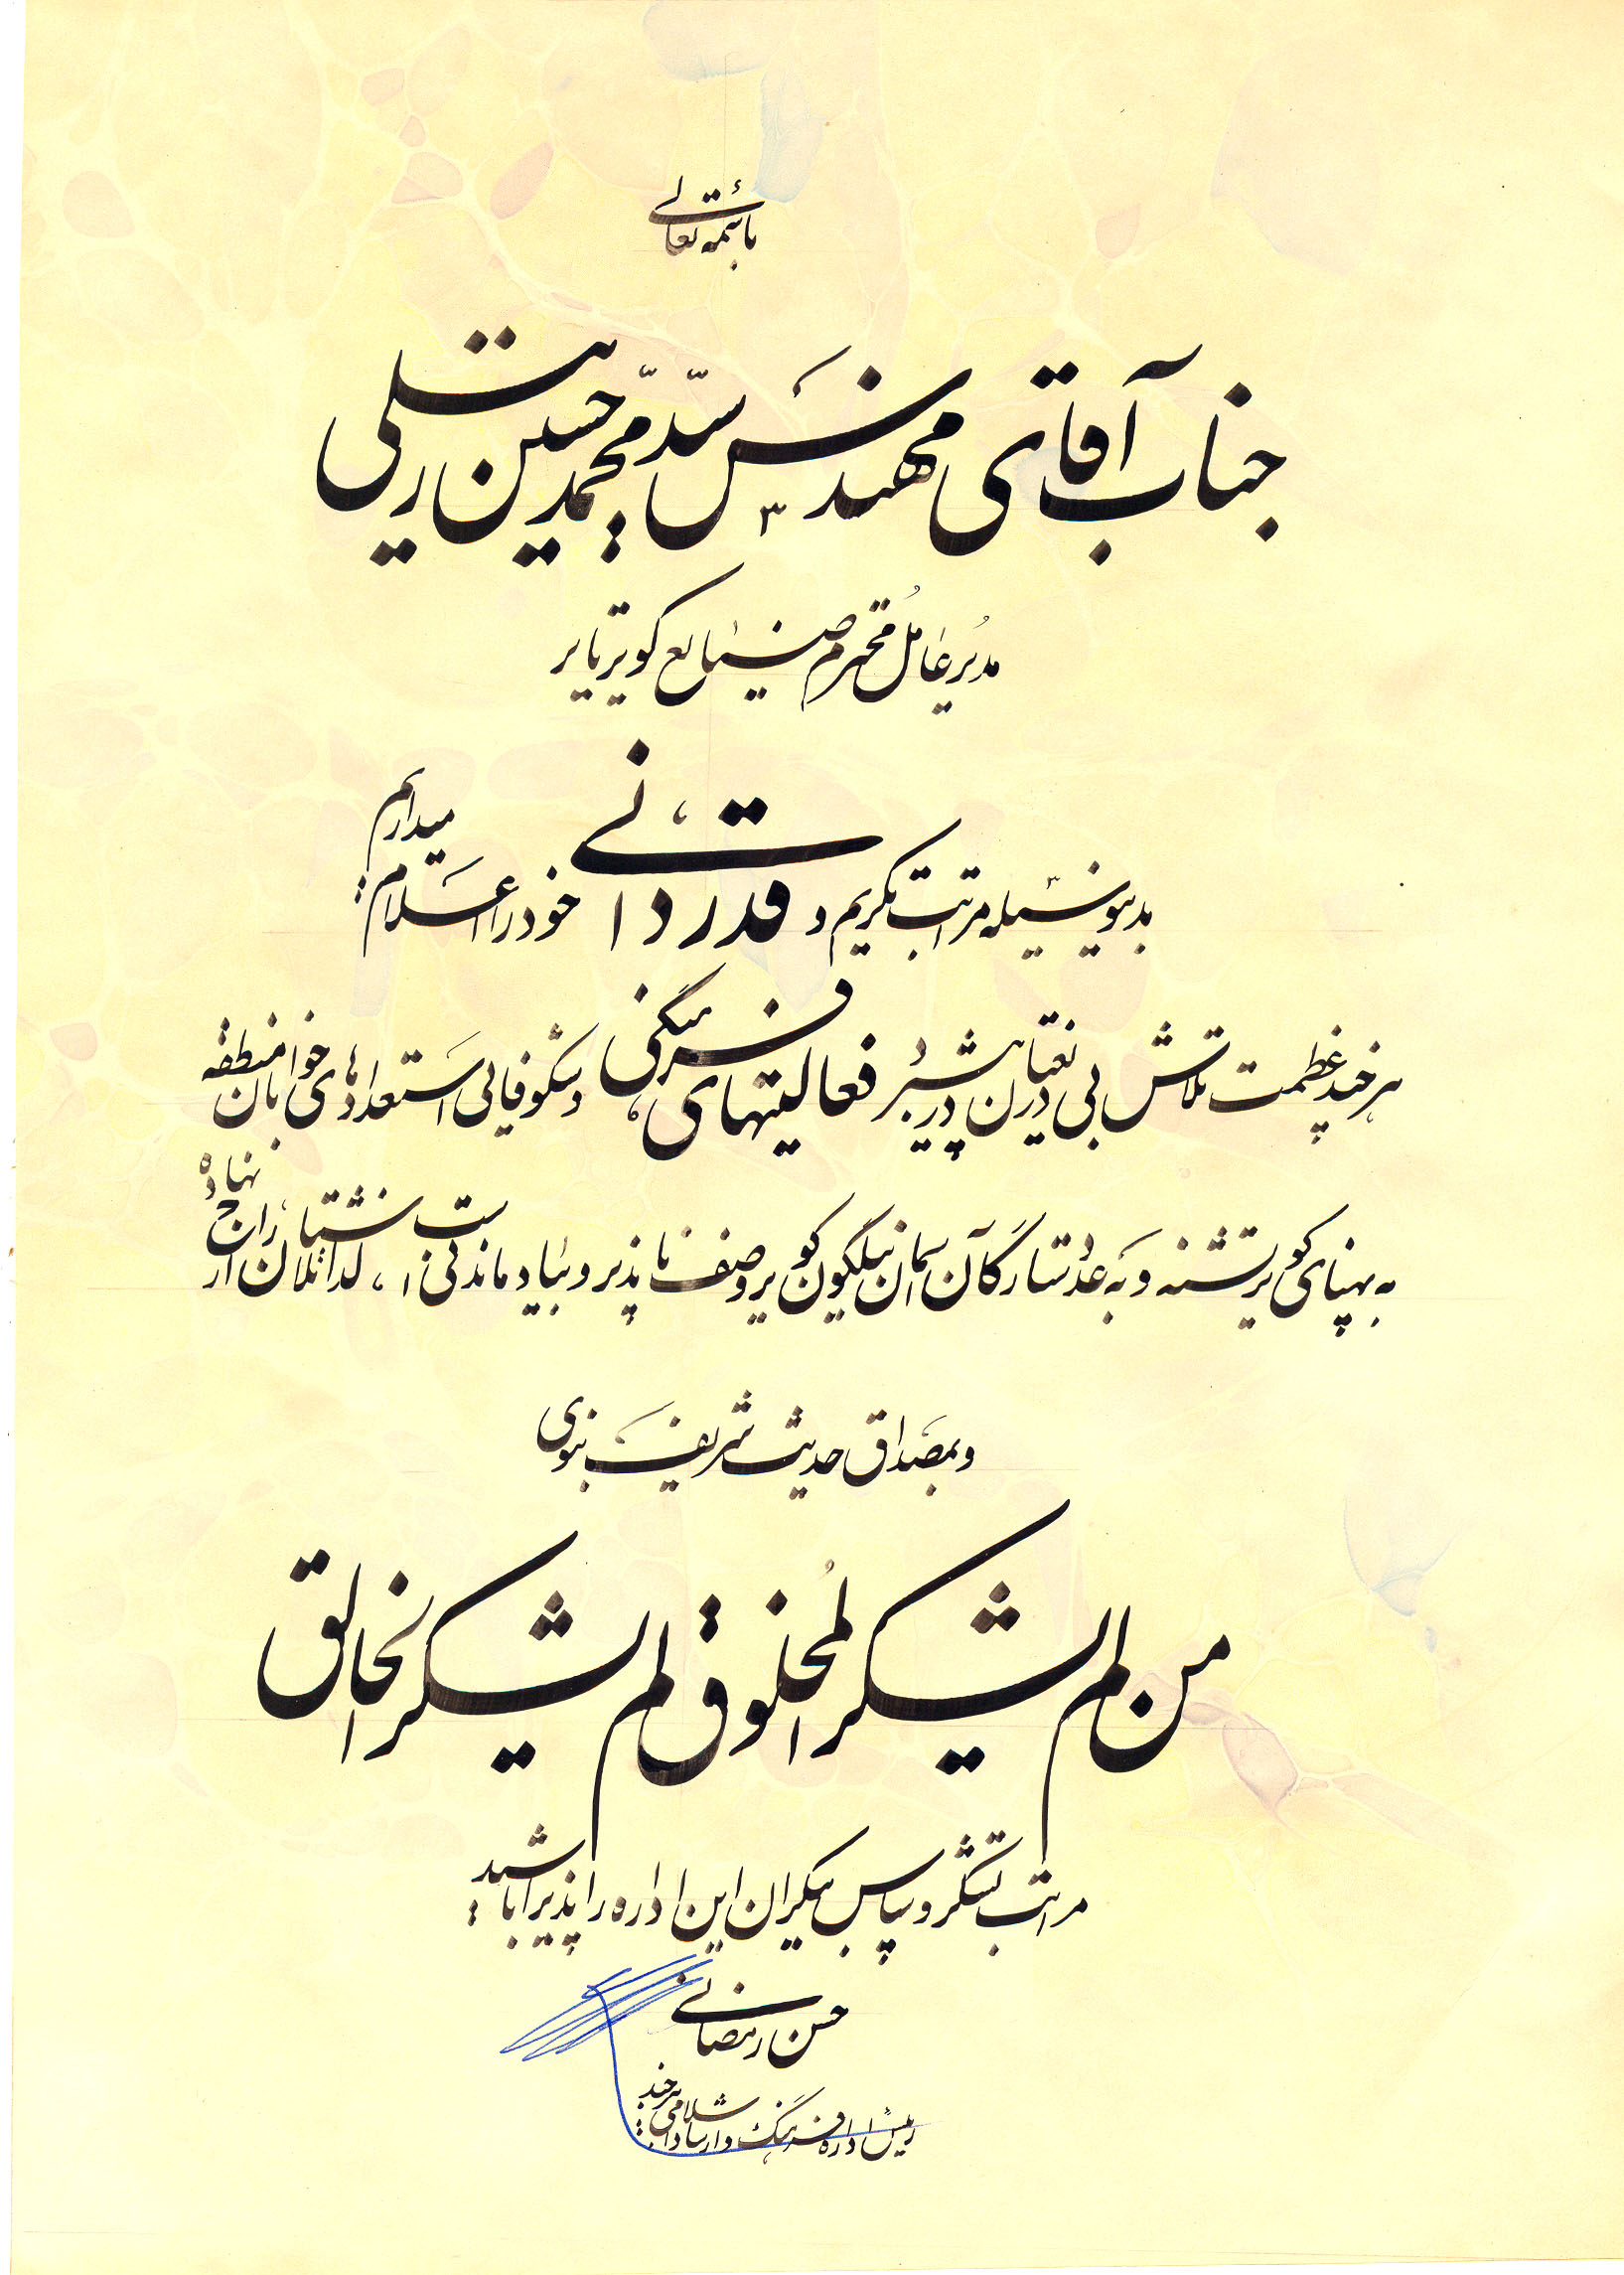 باسمه تعالی
جناب آقای مهندس سید محمد حسین زینلی
مدیر عامل محترم صنایع کویر تایر
بدینوسیله مراتب تکریم و قدردانی خود را اعلام میدارم
هرچند عظمت تلاش بی دریغتان در پیشبرد فعالیتهای فرهنگی و شکوفائی استعدادهای جوانان منطقه
به پهنای کویر تشنه و به عدد ستارگان آسمان نیلگون کویر وصف ناپذیر و بیاد ماندنی است، لذا تلاشتان را ارج نهاده
و بمصداق حدیث شریف نبوی
من لم یشکر المخلوق لم یشکر الخالق
مراتب تشکر و سپاس بیکران این اداره را پذیرا باشید
حسن رمضانی
رئیس اداره فرهنگ و ارشاد اسلامی بیرجند